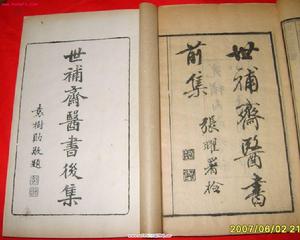 世補齋醫書
前集
張曜署檢
世補齋醫書後集
袁樹勛敬題
2007/06/02 21